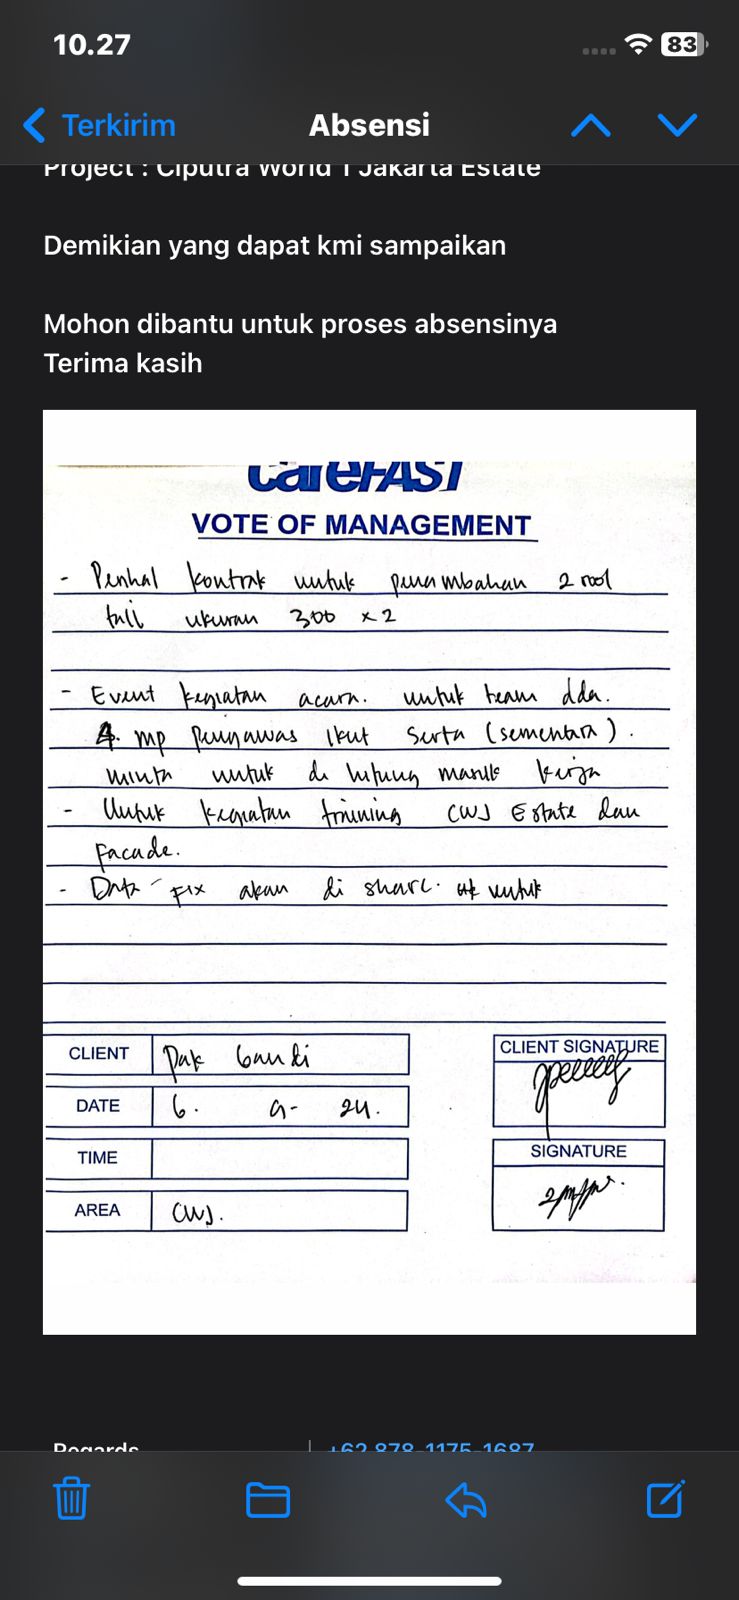 10.27
83
Terkirim
Absensi
Project : Ciputra World 1 Jakarta Estate
Demikian yang dapat kmi sampaikan
Mohon dibantu untuk proses absensinya
Terima kasih
CareFAST
VOTE OF MANAGEMENT
- Perihal kontrak untuk penambahan 2 rool
tali ukuran 300 x 2
- Event kegiatan acara. untuk team dda.
4. mp pengawas ikut serta (sementara).
minta untuk di hitung masuk kerja
- Untuk kegiatan training CWJ Estate dan
Facade.
- Data Fix akan di share. untuk
CLIENT Pak
DATE 6. 9- 24.
TIME
AREA CWJ.
CLIENT SIGNATURE
SIGNATURE
Regards
+62 878-1175-1687